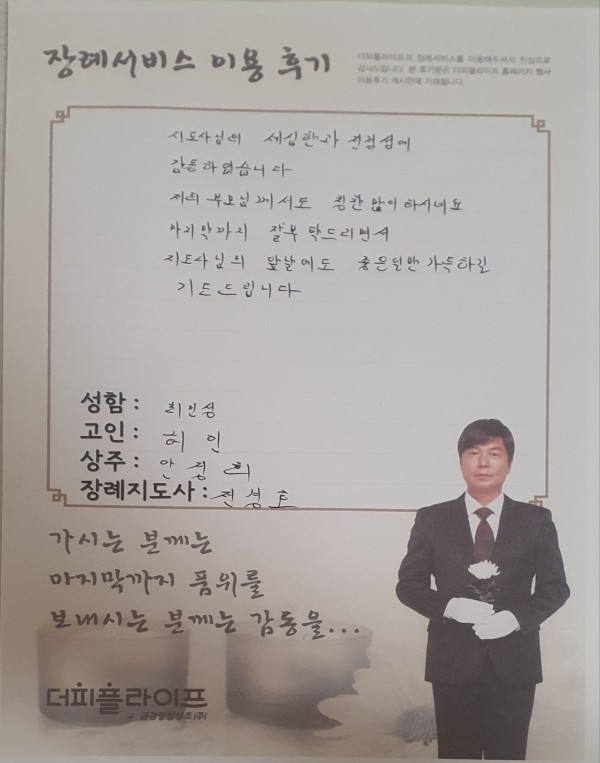 장례서비스 이용 후기
더피플라이프의 장례서비스를 이용해주셔서 진심으로
감사드립니다. 본 후기문은 더피플라이프 홈페이지 행사
이용후기 게시판에 기재됩니다.
지도사님의 세심한과 친절섬에
감동하였습니다
저희 부모님께서도 칭찬 많이 하시네요
마지막까지 잘부탁드리면서
지도사님의 앞날에도 좋은일만 가득하길
기도드립니다
성함 :
고인 : 허 인
상주 : 안 정 희
장례지도사 : 전성호
가시는 분께는
마지막까지 품위를
보내시는 분께는 감동을...
더피플라이프
구. 금강종합상조(주)